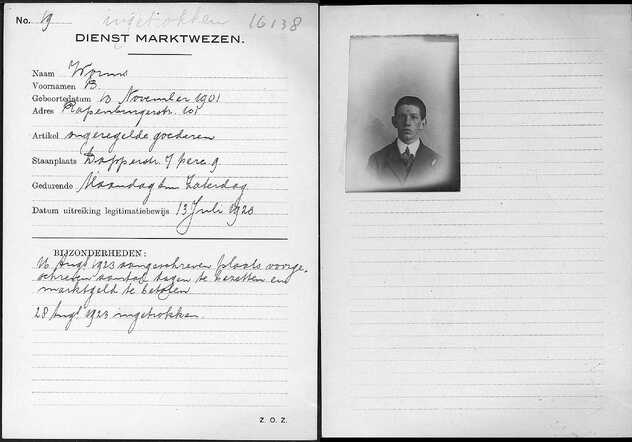 No. 19 ingetrokken 16138
DIENST MARKTWEZEN.
Naam Worms
Voornamen B.
Geboortedatum 13 November 1901
Adres Rapenburgerstr. 101
Artikel ongeregelde goederen
Staanplaats Dapperstr. 7 perc 9
Gedurende Maandag t/m Zaterdag
Datum uitreiking legitimatiebewijs 13 Juli 1923
BIJZONDERHEDEN:
16 Augs 1923 aangeschreven plaats voorge-
schreven aantal dagen te bezetten en
marktgeld te betalen
28 Augs 1923 ingetrokken.
Z. O. Z.